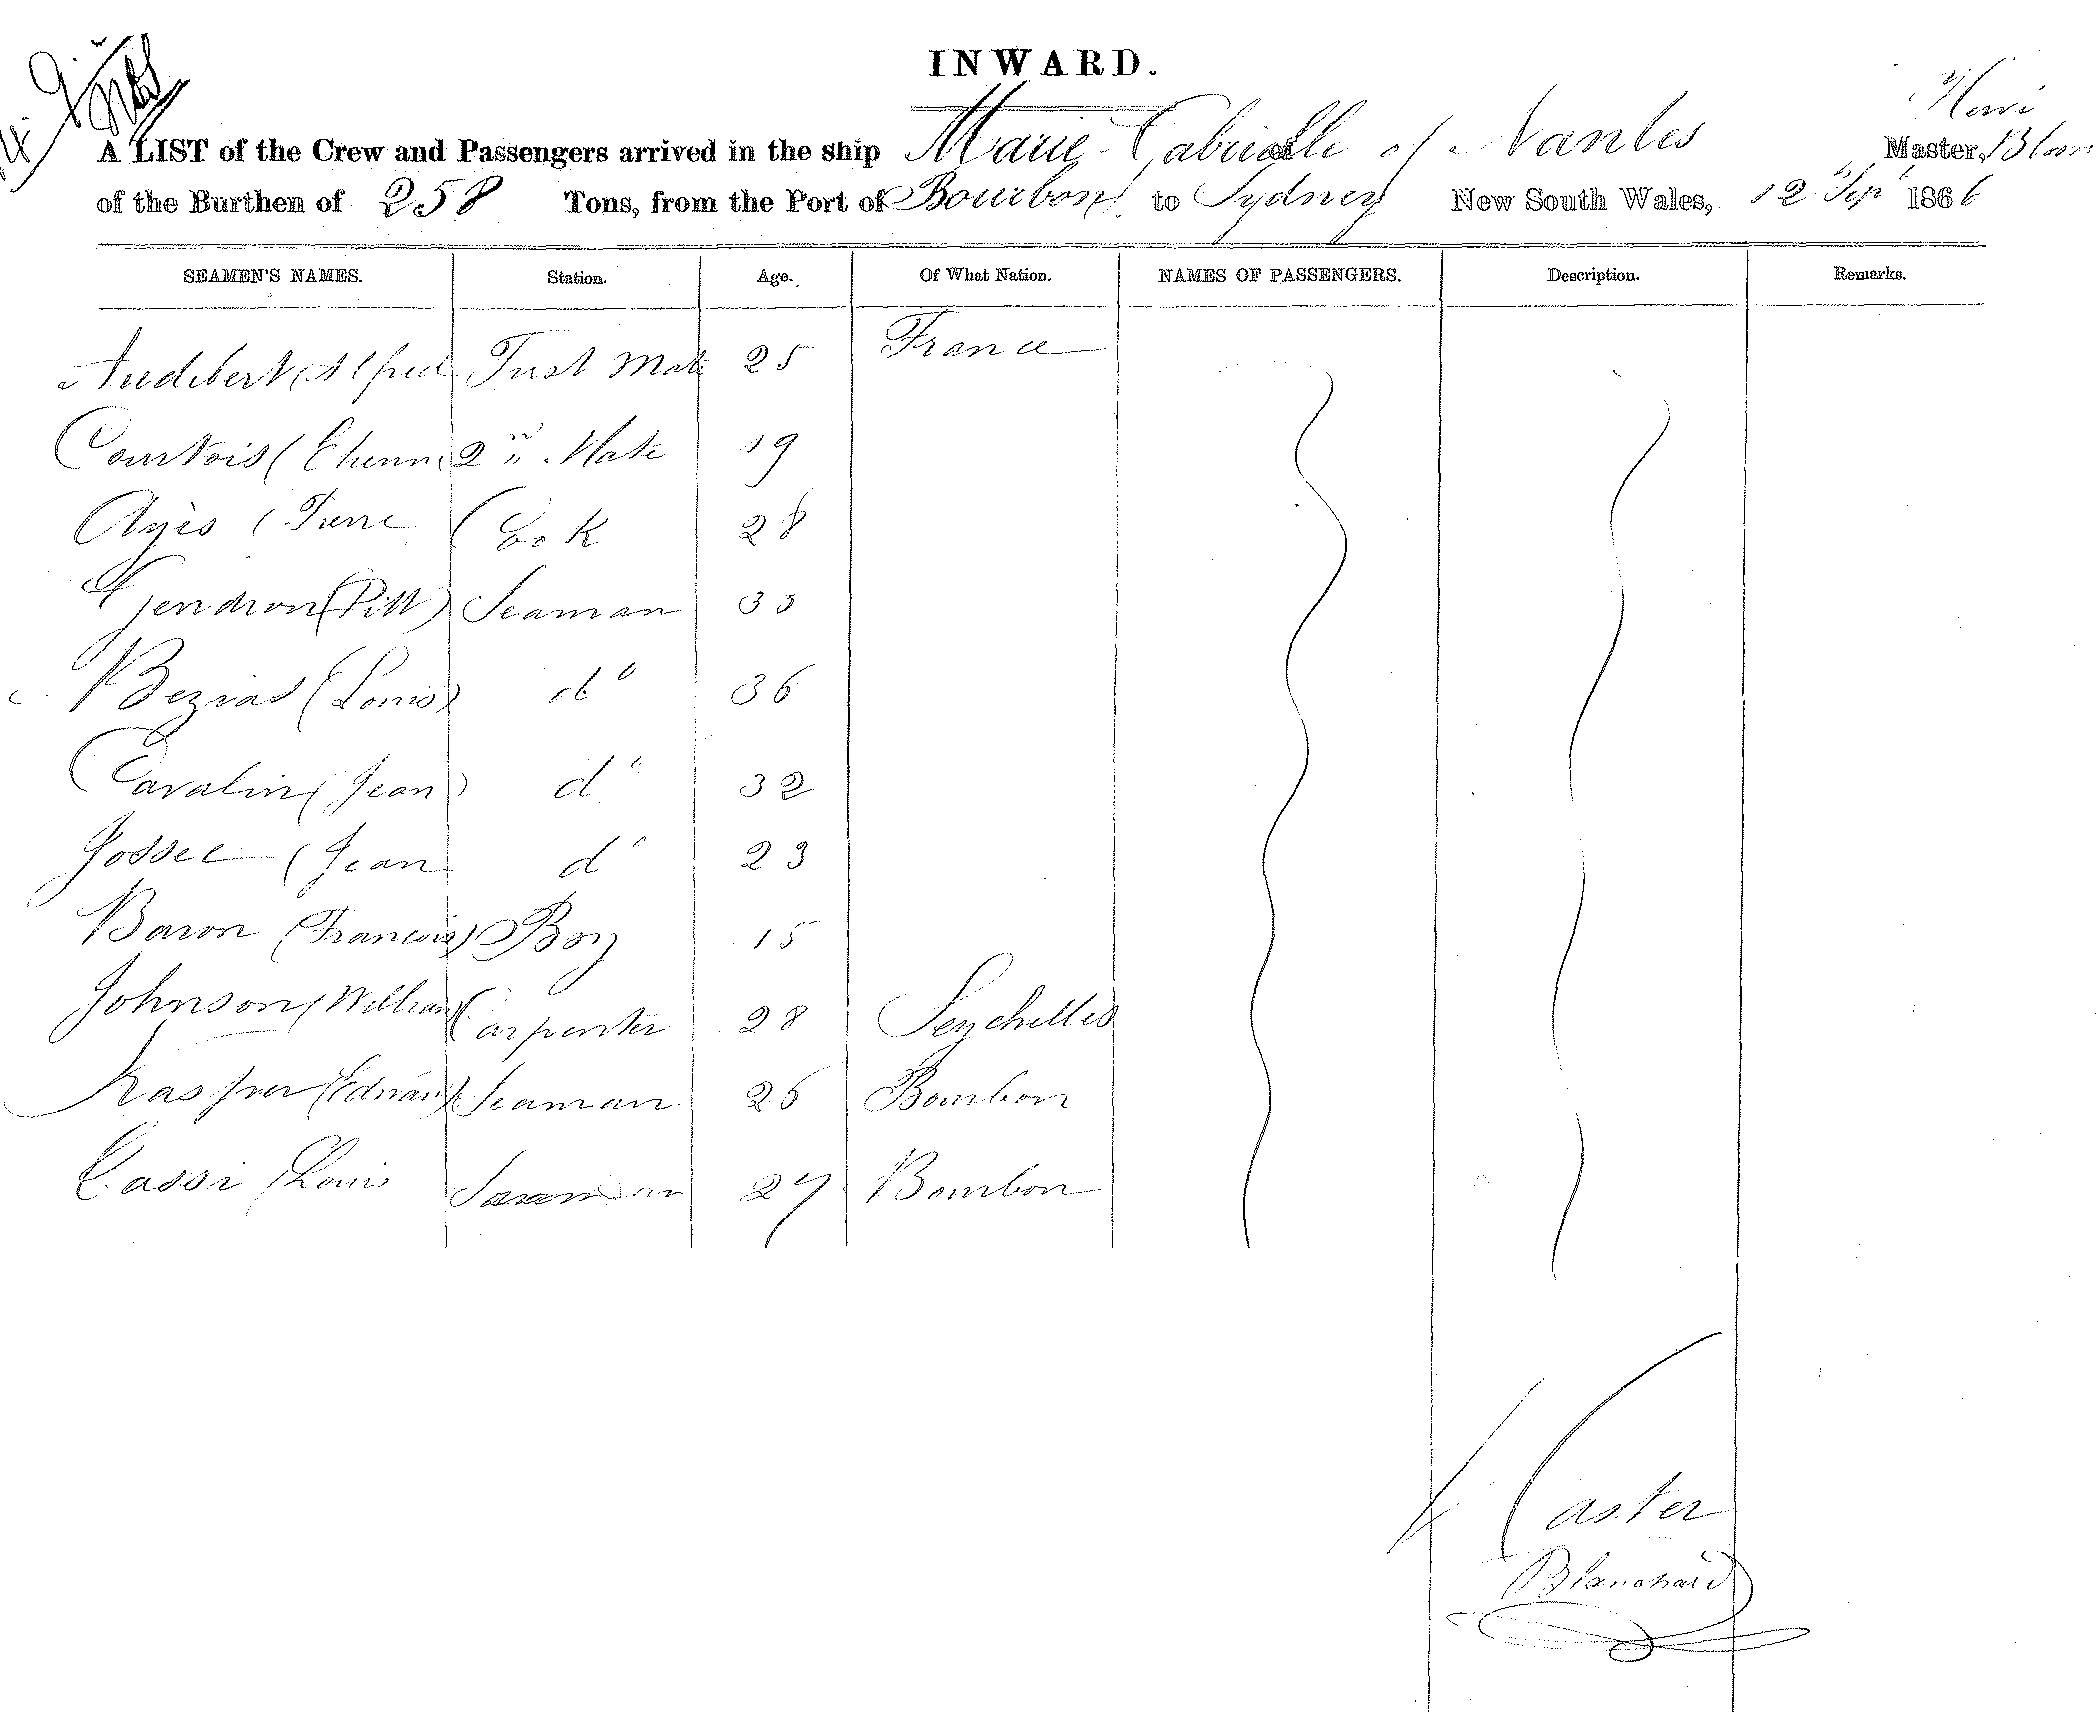 INWARD.
A LIST of the Crew and Passengers arrived in the ship Marie Gabrielle of Nantes Master, Blan
of the Burthen of 258 Tons, from the Port of Bourbon to Sydney New South Wales, 12 Sep 1866
SEAMEN'S NAMES. Station. Age. Of What Nation. NAMES OF PASSENGERS. Description. Remarks.
Audibert (Alfred First Mate 25 France
Courtois (Etienn 2nd Mate 19
(Pierre Cook 28
Gendron (Pitt) Seaman 33
Bezias (Louis) do 36
Cavalin (Jean) do 32
Jossec (Jean do 23
Baron (Francois) Boy 15
Johnson (William Carpenter 28 Seychelles
Seaman 26 Bourbon
Cassi (Louis Seaman 27 Bourbon
Blanchard